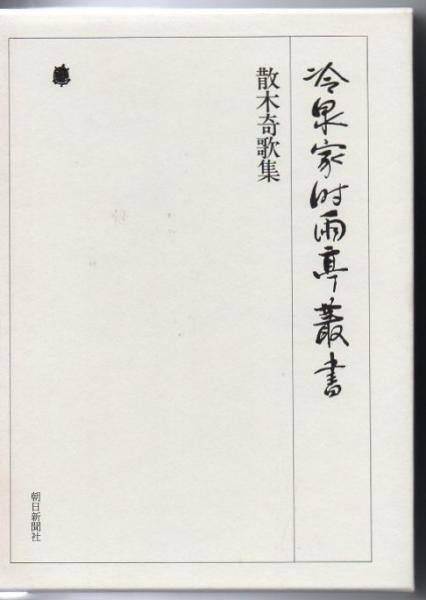 冷泉家時雨亭叢書
散木奇歌集
朝日新聞社